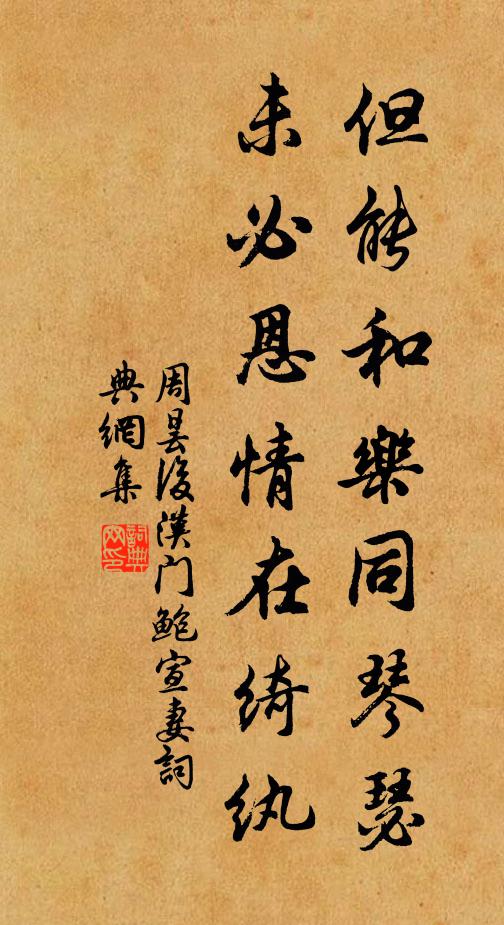 但能和樂同琴瑟
未必恩情在綺紈
周曇後漢門鮑宣妻詞
典網集
詞典
网印